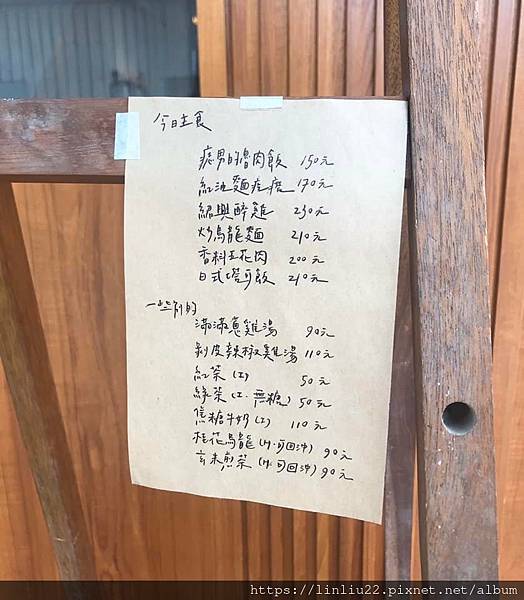 今日主食
痞男的魯肉飯 150元
紅油麵疙瘩 170元
紹興醉雞 230元
炒烏龍麵 210元
香料五花肉 200元
日式咖哩飯 210元
一些別的
滿滿蔥雞湯 90元
剝皮辣椒雞湯 110元
紅茶 (I) 50元
綠茶 (I. 無糖) 50元
焦糖牛奶 (I) 110元
桂花烏龍 (H. 可回沖) 90元
玄米煎茶 (H. 可回沖) 90元
https://linliu22.pixnet.net/album